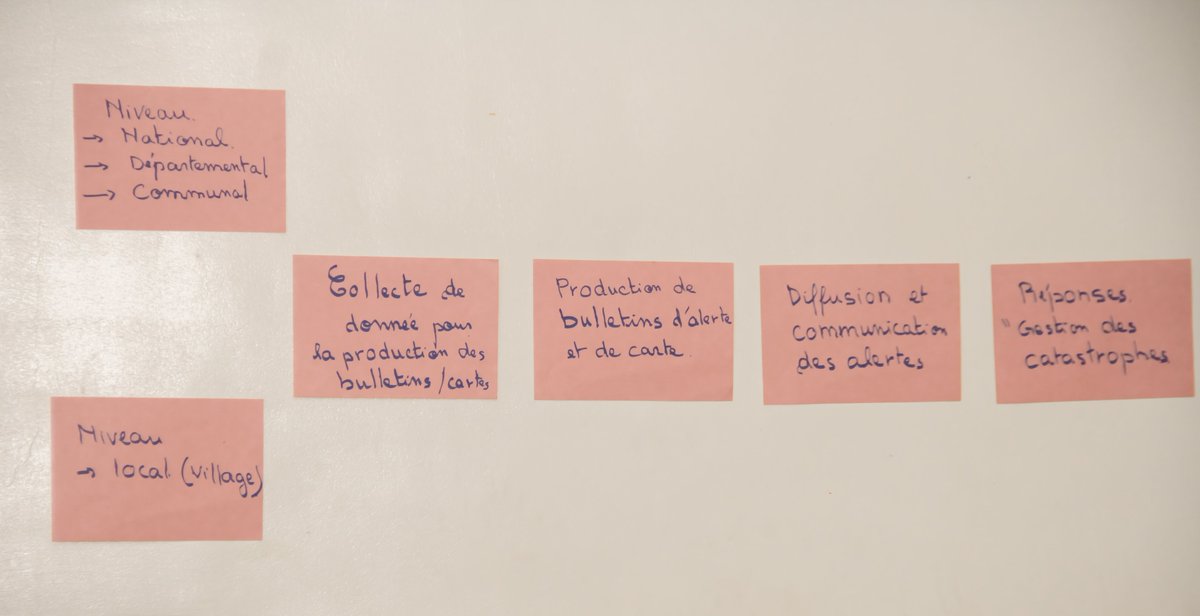 Niveau.
→ National.
→ Départemental
→ Communal
Collecte de
donnée pour
la production des
bulletins/cartes
Production de
bulletins d'alerte
et de carte.
Diffusion et
communication
des alertes
Réponses.
" Gestion des
catastrophes
Niveau
→ local (village)